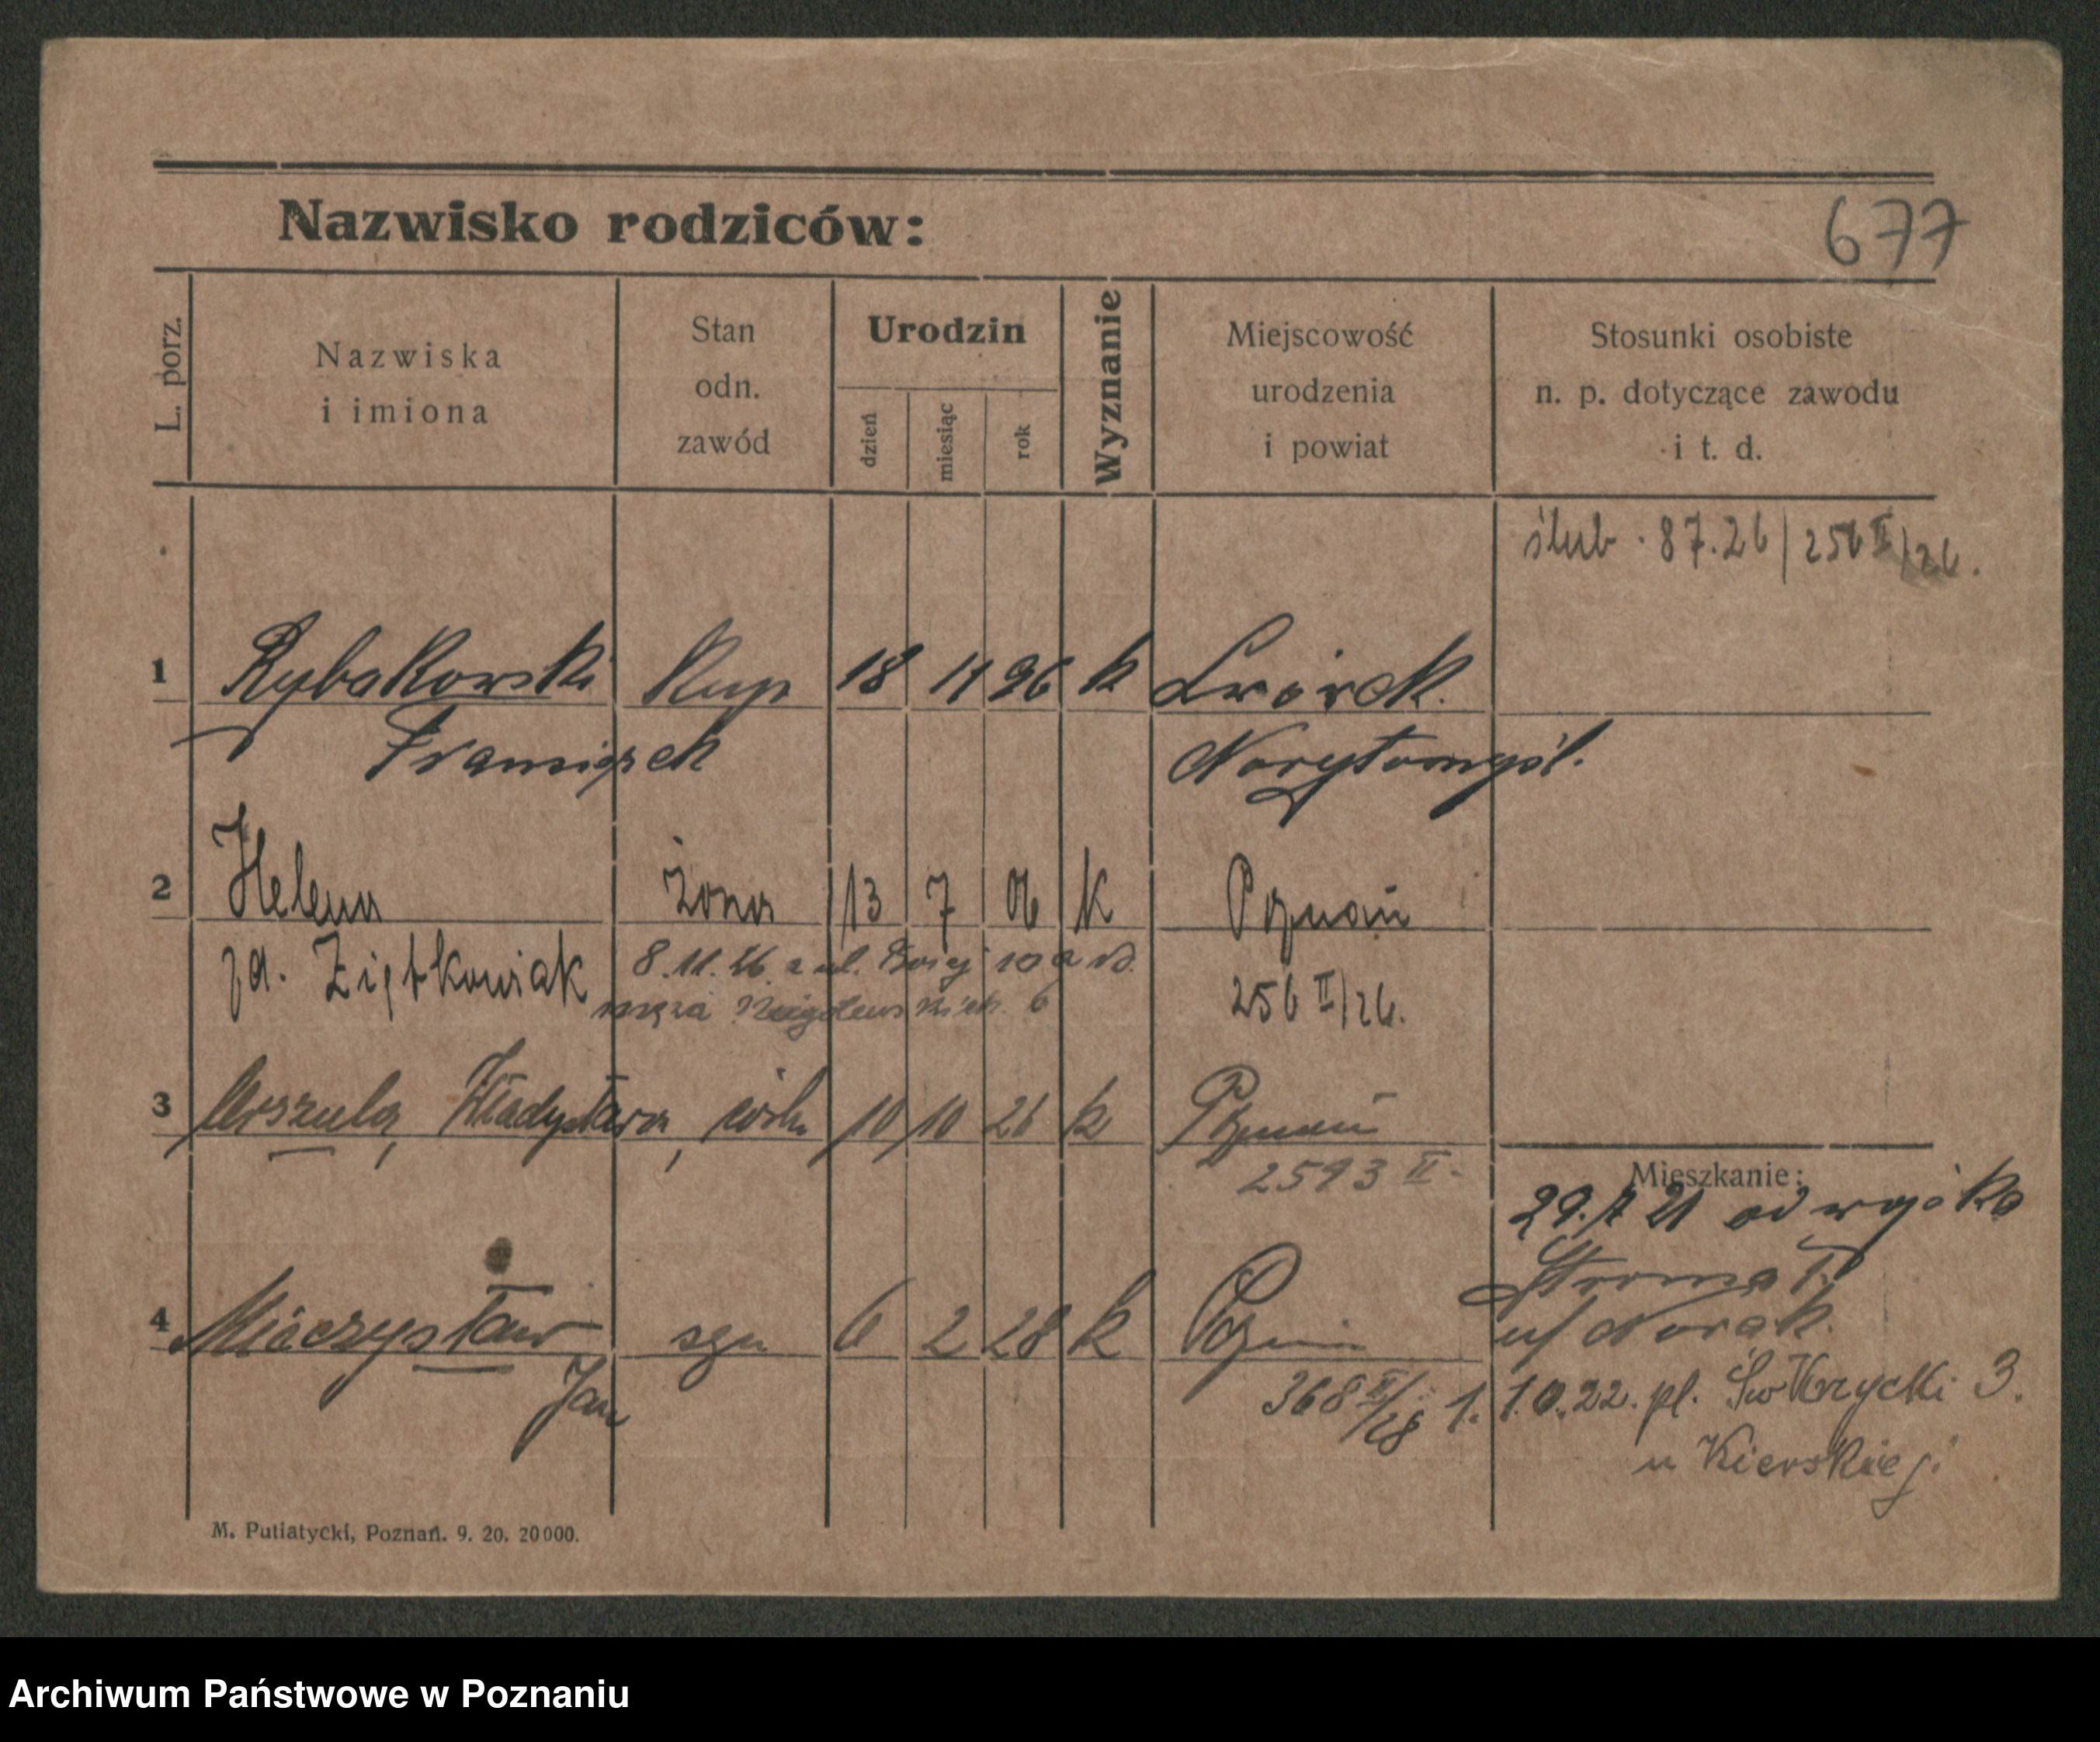 Nazwisko rodziców:
677
L. porz.
Nazwiska
i imiona
Stan
odn.
zawód
Urodzin
dzień
miesiąc
rok
Wyznanie
Miejscowość
urodzenia
i powiat
Stosunki osobiste
n. p. dotyczące zawodu
i t. d.
ślub 8 7. 26 / 256 II / 26.
1 Rybakowski Kup 18 11 96 k Lwówek.
Franciszek Nowytomyśl.
2 Helena żona 13 7 06 k Poznań
zd. Ziętkowiak 8. 11. 26 z ul. 10a do
męża 6 256 II/26.
3 Urszula, Władysława, córka 10 10 26 k Poznań
2593 II
Mieszkanie:
29. 7 21 od wojska
u/ Nowak.
4 Mieczysław syn 6 2 28 k Pozn
Jan 368 II/28
1. 10. 22. pl. Św Krzycki 3.
u Kierskiej.
M. Putiatycki, Poznań. 9. 20. 20000.
Archiwum Państwowe w Poznaniu